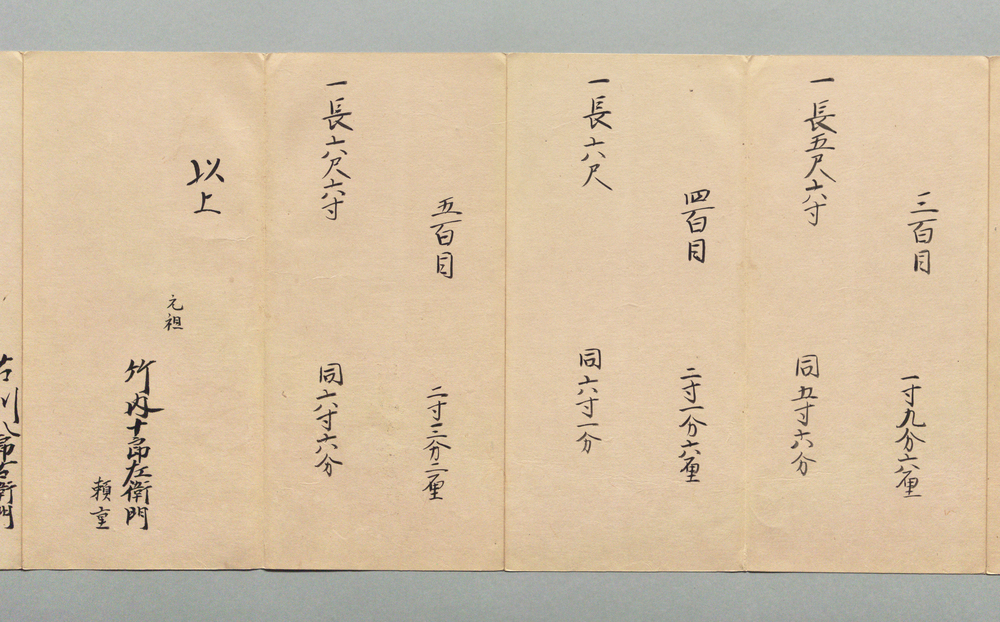 三百目
一寸九分六厘
一長五尺六寸
同五寸六分
四百目
二寸一分六厘
一長六尺
同六寸一分
五百目
二寸三分二厘
一長六尺六寸
同六寸六分
以上
元祖
竹内十郎左衛門
頼重